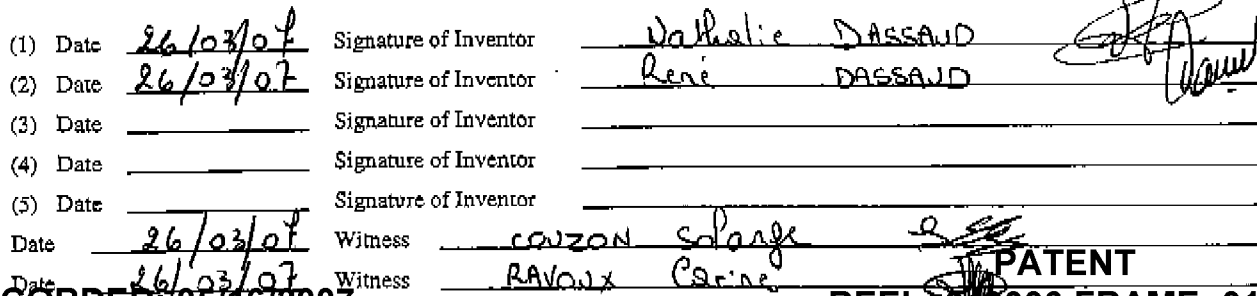 (1) Date 26/03/07 Signature of Inventor Nathalie DASSAUD
(2) Date 26/03/07 Signature of Inventor René DASSAUD
(3) Date Signature of Inventor
(4) Date Signature of Inventor
(5) Date Signature of Inventor
Date 26/03/07 Witness COUZON Solange
Date 26/03/07 Witness RAVOUX Carine
PATENT